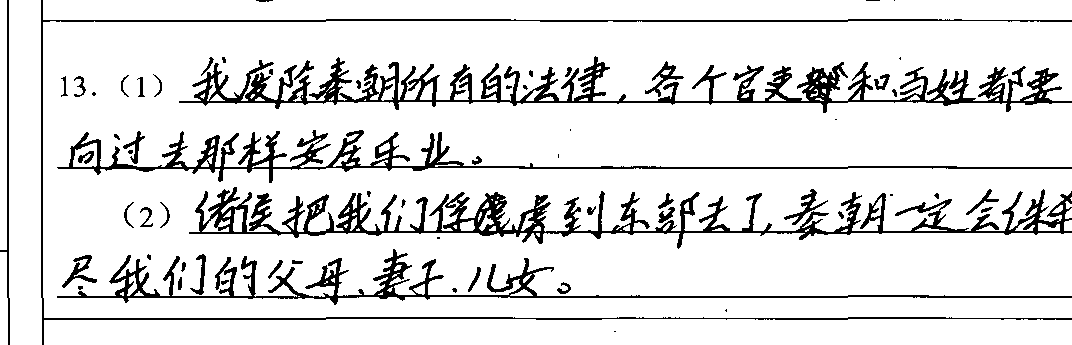 13.（1）我废除秦朝所有的法律，各个官吏和百姓都要
向过去那样安居乐业。
（2）诸侯把我们俘虏到东部去了，秦朝一定会诛
尽我们的父母、妻子、儿女。